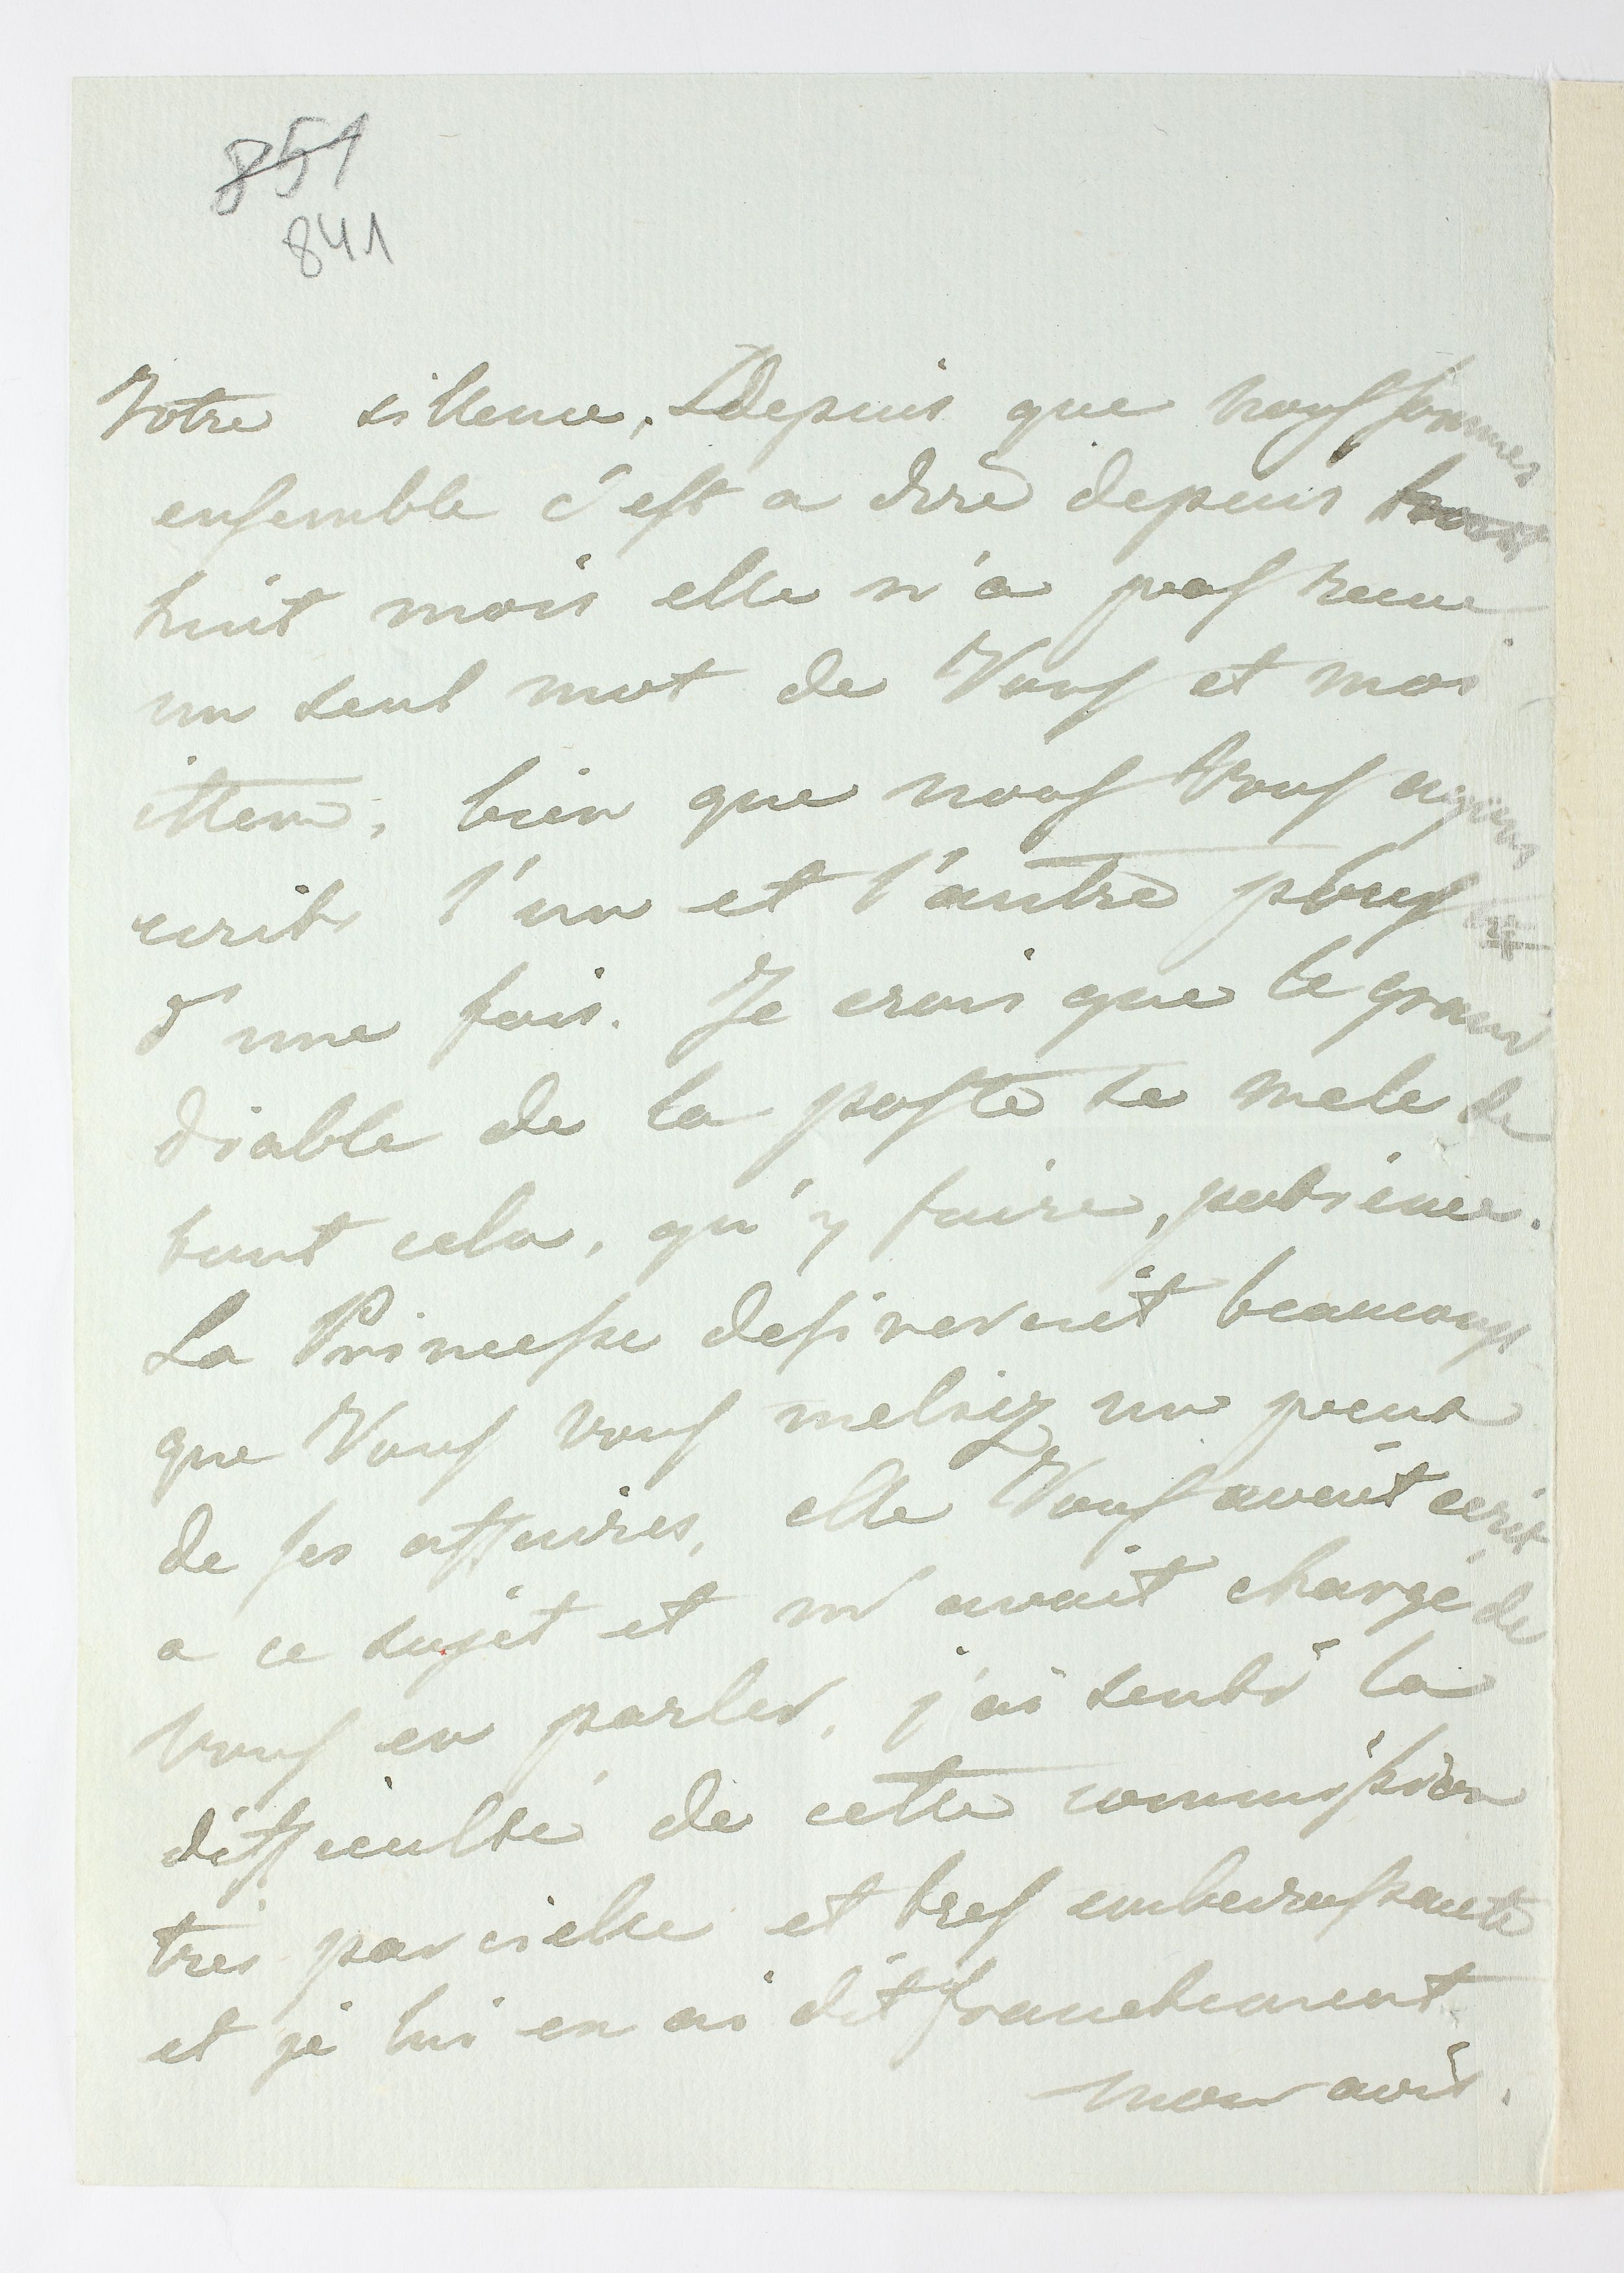 851
841
Votre sillence. Depuis que nous sommes
ensemble c'est a dire depuis
huit mois elle n'a pas recue
un seul mot de Vous et moi
ittem, bien que nous Vous ayons
ecrits l'un et l'autre plus
d'une fois. Je crois que le grand
diable de la poste se mele de
tout cela, qu'y faire, patience.
La Princesse desirerait beaucoup
que Vous vous meliez un peux
de ses affaires, elle Vous avait ecrit
a ce sujet et m'avait chargé de
vous en parler, j'ai senti la
difficulté de cette commission
tres parcielle et tres embarassante
et je lui en ai dit franchement
mon avis.